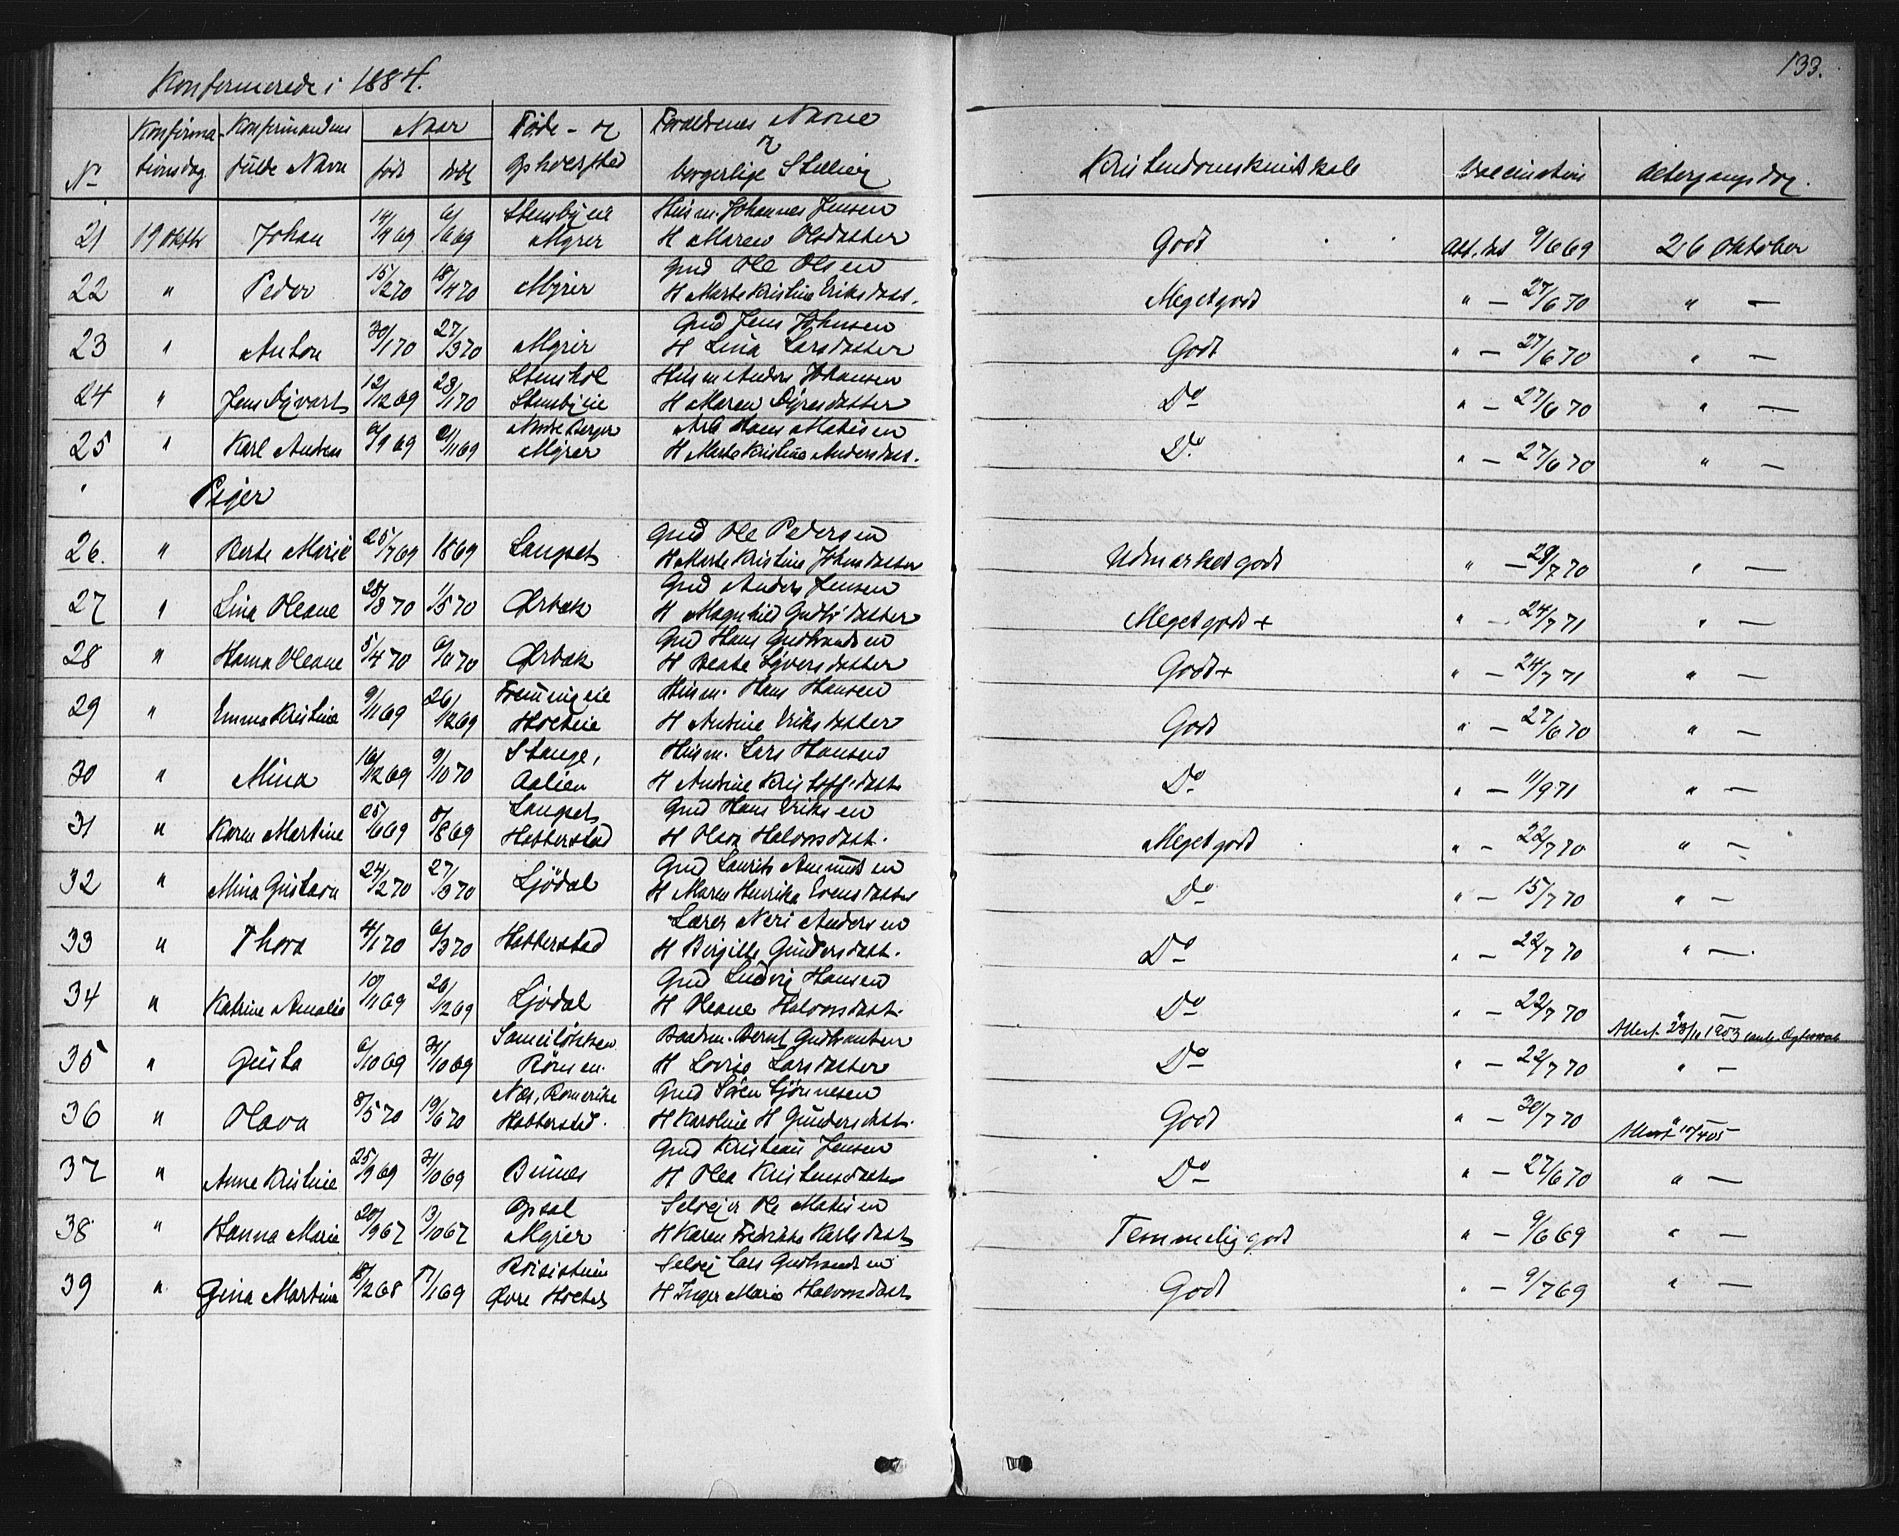 133.
Konfirmerede i 1884.
No Konfirmationsdag Konfirmandens fulde Navn Naar født døbt Føde- og Opholdssted Forældrenes Navne og borgerlige Stilling Kristendomskundskab Vaccination Altergangsdag.
21 19 Oktbr Johan 14/4 69 6/6 69 Stensbyeie Husm. Johannes Jensen
Myrer H Maren Olsdatter Godt Att. dat 9/6 69 26 Oktober
22 " Peder 15/2 70 18/4 70 Myrer Gmd Ole Olsen
H Marte Kristine Eriksdatt. Meget godt " — 27/6 70 " —
23 " Anton 30/1 70 27/3 70 Myrer Gmd Jens Johnsen
H Lina Larsdatter Godt " — 27/6 70 " —
24 " Jens Syvart 12/12 69 23/1 70 Husm Anders Johansen
Stensbyeie H Maren Syversdatter Do " — 27/6 70 " —
25 " Karl Andreas Nordre Berger Arb Hans Matisen
Myrer H Marte Kristine Andersdatt. Do " — 27/6 70 " —
Piger
26. " Berte Marie 25/7 69 1869 Langset Gmd Ole Pedersen
H Marte Kristine Johnsdatter Udmærket godt " — 29/7 70 " —
27 " Lina Oleane 28/3 70 1/5 70 Ørbæk Gmd Anders Jensen
H Magnhild Datter Meget godt + " — 24/7 71 " —
28 " Hanna Oleane 5/4 70 6/6 70 Ørbæk Gmd Hans Gudbrandsen
H Beate Syversdatter Godt + " — 24/7 71 " —
29 " Emma Kristine 9/11 69 26/12 69 Husm. Hans Hansen
H Andrine Eriksdatter Godt " — 27/6 70 " —
30 " Mina 16/12 69 9/10 70 Stange, Husm. Lars Hansen
H Andrine Kristoffsdatt. Do " — 11/9 71 " —
31 " Karen Martine 25/6 69 8/8 69 Langset Gmd Hans Eriksen
Habberstad H Olea Halvorsdatt. Meget godt " — 22/7 70 " —
32 " Mina Gustava 24/2 70 27/3 70 Ljødal Gmd Laurits Amundsen
H Maren Henrika Evensdatter Do " — 15/7 70 " —
33 " Thora 4/1 70 6/3 70 Habberstad Lærer Neri Andersen
H Birgitte Gundersdatt. Do " — 22/7 70 " —
34 " Katrine Amalie 10/11 69 26/12 69 Ljødal Gmd Ludvig Hansen
H Oleane Halvorsdatt. Do " — 22/7 70 " —
Attest 23/11 1903
35 " Gusta 6/10 69 31/10 69 Baadm. Bernt Gudbrandsen
H Lovise Larsdatter Do " — 22/7 70 " —
36 " Olava 8/5 70 19/6 70 Næs, Romerike Gmd Søren Sjønnesen
Habberstad. H Karoline H Gundersdatt. Godt " — 30/7 70 " —
Attest 10/4 05
37 " Anne Kristine 25/9 69 31/10 69 Bunes Gmd Kristian Jensen
H Olea Kristensdatter Do " — 27/6 70 " —
38 " Hanna Marie 20/9 67 13/10 67 Opsal Selvejer Ole Matisen
Myrer H Karen Fredrikke Karlsdatt Temmelig godt " — 9/6 69 " —
39 " Gina Martine 18/12 68 17/1 69 Selvej Lars Gudbrandsen
Øvre H Inger Marie Halvorsdatt Godt " — 9/7 69 " —